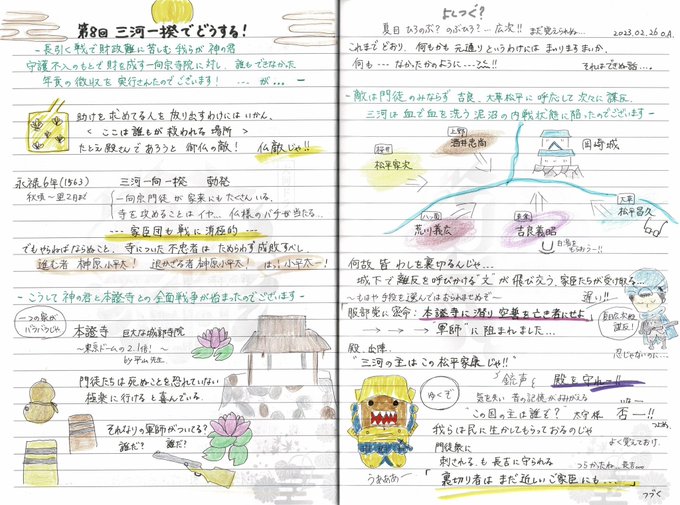 第8回 三河一揆でどうする!
- 長引く戦で財政難に苦しむ我らが神の君
守護不入のもとで財を成す一向宗寺院に対し、誰もできなかった
年貢の徴収を実行されたのでございます! ... が... -
助けを求めてる人を放り出すわけにはいかん。
< ここは誰もが救われる場所 >
たとえ殿さんであろうと 御仏の敵! 仏敵じゃ!!
永禄6年(1563) 三河一向一揆 勃発
秋頃~翌2月まで
一向宗門徒が家来にもたくさんいる。
寺を攻めることはイヤ... 仏様のバチが当たる...
--- 家臣団も戦に消極的 ---
でもやらねばならぬこと。寺についた不忠者は ためらわず成敗すべし。
進む者 榊原小平太! 退かざる者 榊原小平太! はっ! 小平太ー!
- こうして神の君と本證寺との全面戦争が始まったのでございます -
一つの家が
バラバラじゃ
本證寺 巨大な城郭寺院
~東京ドームの2.1倍! ~
by 平山先生
門徒たちは死ぬことを恐れていない
極楽に行けると喜んでいる。
それなりの軍師がついてる?
誰だ? 誰だ?
よしつぐ?
夏目 ひろのぶ? のぶひろ? ... 広次!! まだ覚えられぬ...
2023.02.26 O.A.
これまでどおり、何もかも元通りというわけには まいりますまいか。
何も --- なかったかのように ---
それはできぬ話...。
- 敵は門徒のみならず 吉良、大草松平に呼応して次々に謀反。
三河は血で血を洗う泥沼の内戦状態に陥ったのでございますー
上野
酒井忠尚
岡崎城
桜井
松平家次
八ツ面
荒川義広
東条
吉良義昭
大草
松平昌久
何故 皆 わしを裏切るんじゃ...
城下で離反を呼びかける"文"が飛び交う、家臣たちが受け取る...
~もはや手段を選んではおられませぬぞ~
遅い!!
服部党に密命: 本證寺に潜り空誓を亡き者にせよ
→ → → "軍師"に阻まれました...
忍じゃないのに...
殿、出陣。
"三河の主はこの松平家康じゃ!!"
銃声 殿を守れー!!
ゆくぞ
気を失い 昔の記憶がよみがえる
"この国の主は誰ぞ? 太守様 否ー!!
我らは民に生かしてもっておるのじゃ
よく覚えており
門徒衆に
刺される も 長吉に守られる
つらかったね...長吉...
うぁああー
「裏切り者は まだ近しいご家臣にも・・・・」
つづく